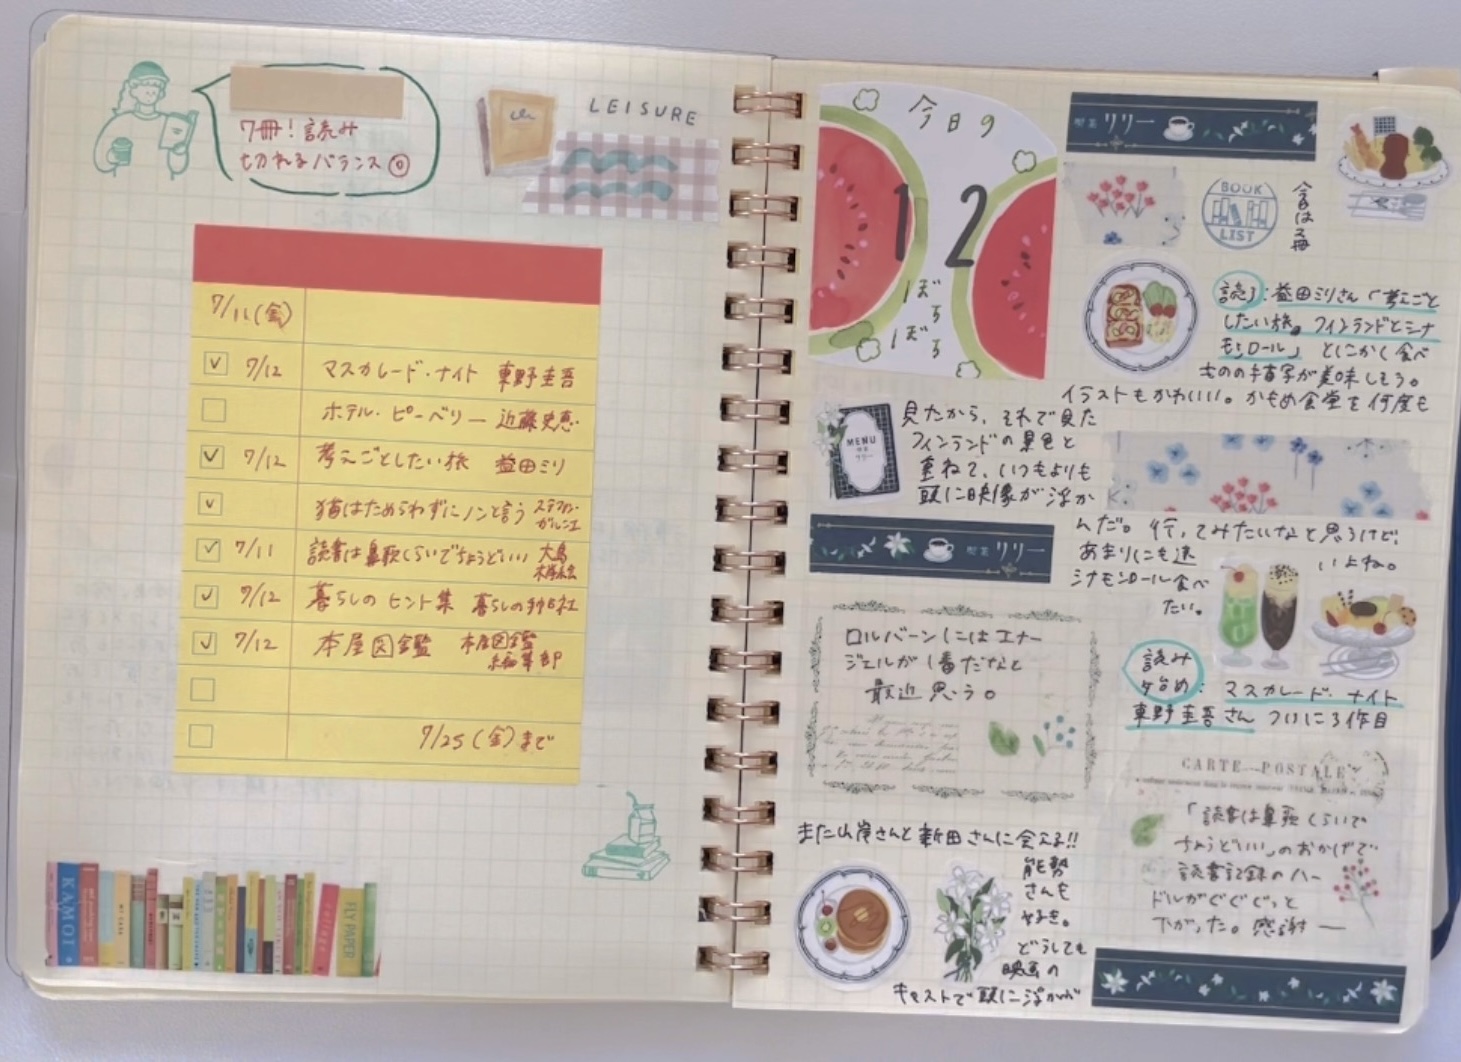 7冊！読み
切れるバランス◎
LEISURE
7/11(金)
7/12 マスカレード・ナイト 東野圭吾
ホテル・ピーベリー 近藤史恵
7/12 考えごとしたい旅 益田ミリ
猫はためらわずにノンと言う ステファン・
ガルニエ
7/11 読書は鼻歌くらいでちょうどいい 大島
梢絵
7/12 暮らしのヒント集 暮らしの手帖社
7/12 本屋図鑑 本屋図鑑
編集部
7/25(金)まで
KAMOI
FLY PAPER
今日の
12
ぼろ
ぼろ
喫茶 リリー
BOOK
LIST
今日は2冊
読了:益田ミリさん「考えごと
したい旅。フィンランドとシナ
モンロール」とにかく食べ
ものの描写が美味しそう。
イラストもかわいい。かもめ食堂を何度も
見たから、それで見た
フィンランドの景色と
重ねて、いつもよりも
頭に映像が浮か
MENU
喫茶
リリー
んだ。行ってみたいなと思うけど、
あまりにも遠
いよね。
シナモンロール食べ
たい。
喫茶 リリー
ロルバーンにはエナー
ジェルが1番だなと
最近思う。
読み
始め:マスカレード・ナイト
東野圭吾さん ついに3作目
CARTE POSTALE
また山岸さんと新田さんに会える!!
能勢
さんも
好き。
どうしても
映画の
キャストで頭に浮かぶ
「読書は鼻歌くらいで
ちょうどいい」のおかげで
読書記録のハー
ドルがぐぐぐっと
下がった。感謝ー